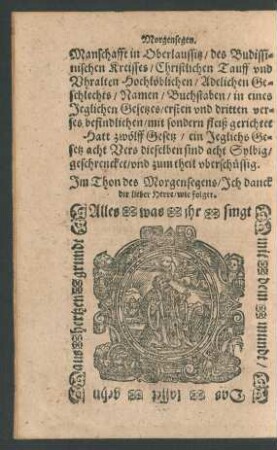 Morgensegen.
Manschafft in Oberlaussitz/ des Budissi-
nischen Kreisses/ Christlichen Tauff und
Vhralten Hochlöblichen/ Adelichen Ge-
schlechts/ Namen/ Buchstaben/ in eines
Jeglichen Gesetzes/ ersten vnd dritten ver-
ses befindlichen/ mit sondern fleiß gerichtet
Hatt zwölff Gesetz/ ein Jeglichs Ge-
setz acht Vers dieselben sind acht Sylbig/
geschrencket/ vnd zum theil vberschüssig.
Im Thon des Morgensegens/ Ich danck
dir lieber Herre/ wie folget.
Alles was ihr singt
mit dem mundt/
Das lasset gehn
aus hertzen grundt